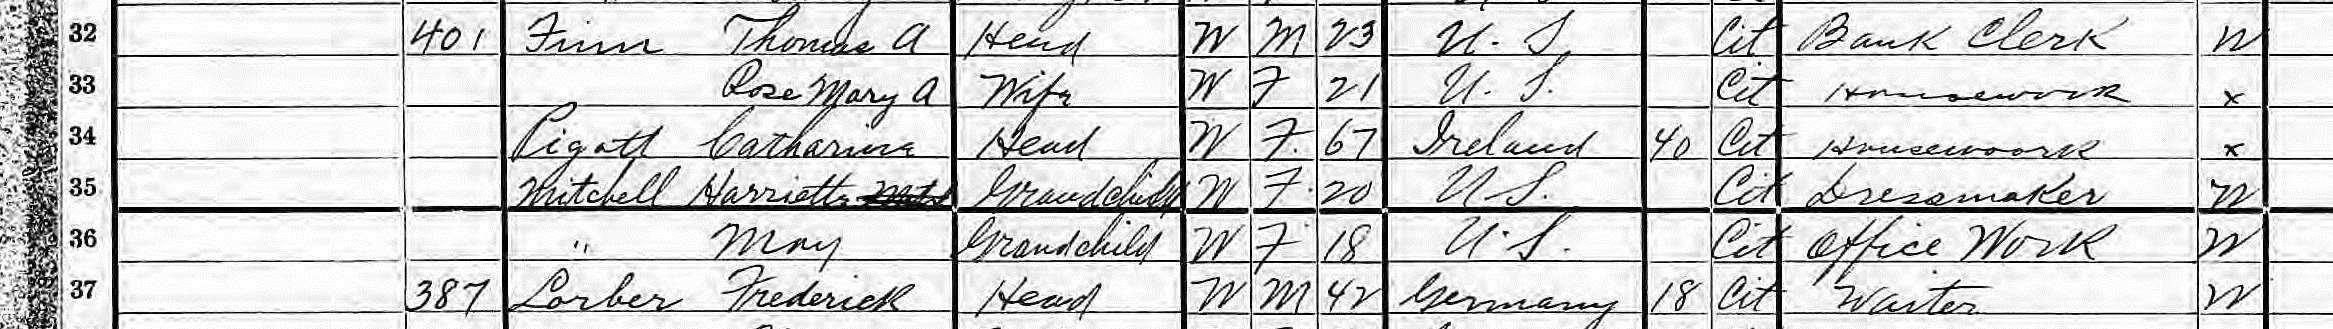 32 401 Finn Thomas A Head W M 23 U. S. Cit Bank Clerk W
33 Rose Mary A Wife W F 21 U. S. Cit Housework x
34 Pigott Catharine Head W F. 67 Ireland 40 Cit Housewoork x
35 Mitchell Harriette Grandchild W F. 20 U S. Cit Dressmaker W
36 " May Grandchild W F 18 U. S. Cit Office Work W
37 387 Lorber Frederick Head W M 42 Germany 18 Cit Waiter W